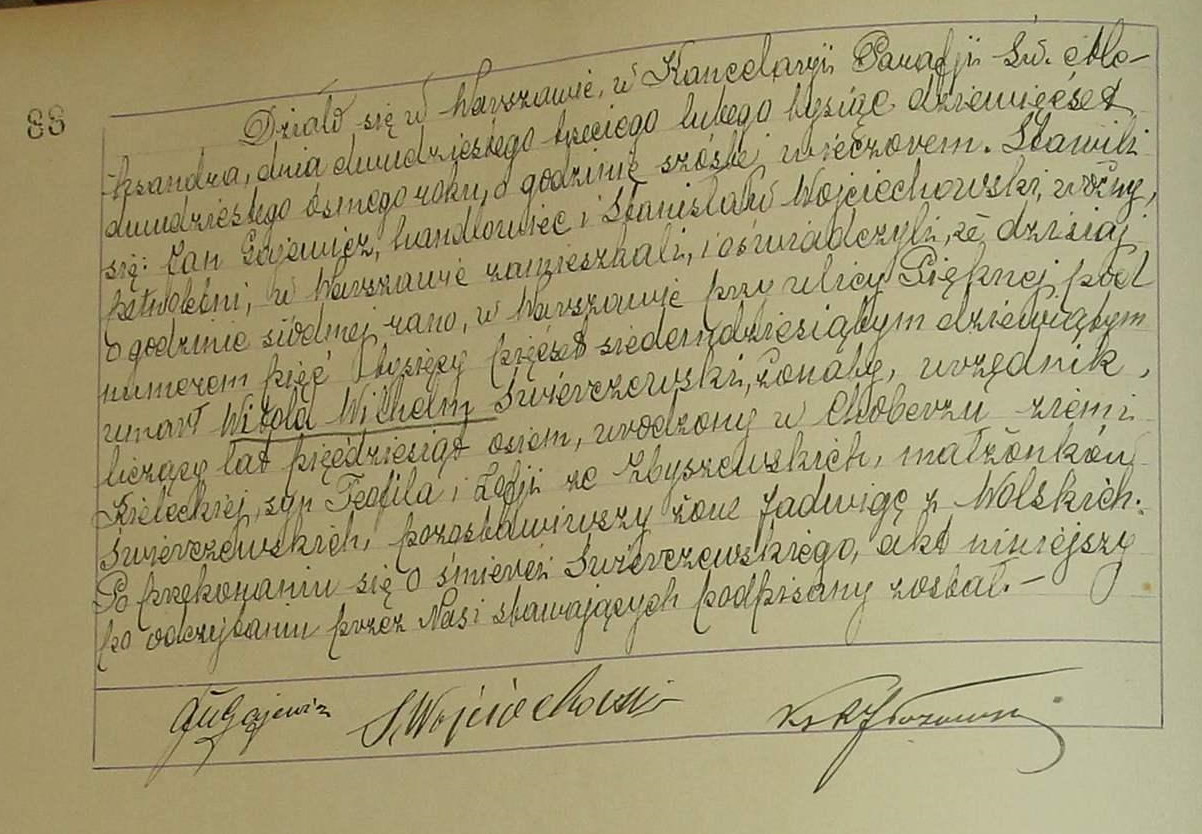 88
Działo się w Warszawie, w Kancelaryji Parafji Św. Ale-
ksandra, dnia dwudziestego trzeciego lutego tysiąc dziewięćset
dwudziestego ósmego roku, o godzinie szóstej wieczorem. Stawili
się: Jan Gajewicz, handlowiec i Stanisław Wojciechowski, woźny,
pełnoletni, w Warszawie zamieszkali, i oświadczyli, że dzisiaj
o godzinie siódmej rano, w Warszawie przy ulicy Pięknej pod
numerem pięć tysięcy pięćset siedemdziesiątym dziewiątym
umarł Witold Wilhelm Świerczewski, żonaty, urzędnik,
liczący lat pięćdziesiąt osiem, urodzony w Choberzu ziemi
Kieleckiej, syn Teofila i Zofji ze Zbyszewskich, małżonków
Świerczewskich, pozostawiwszy żonę Jadwigę z Wolskich.
Po przekonaniu się o śmierci Świerczewskiego, akt niniejszy
po odczytaniu przez Nas i stawających podpisany został. —
Gajewicz S. Wojciechowski Ks.